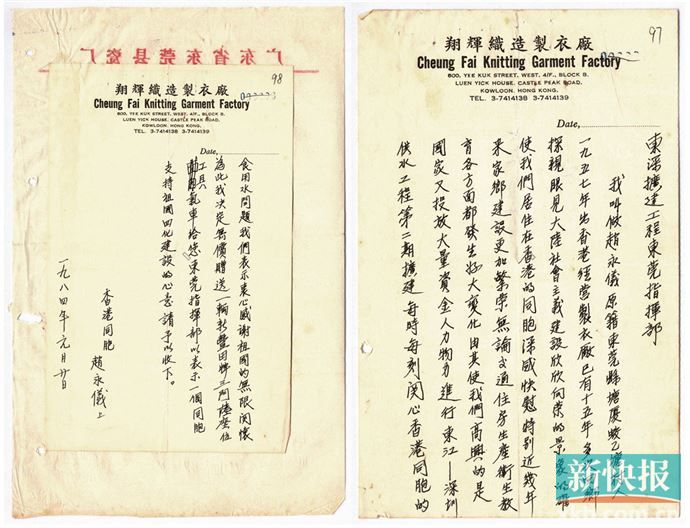 97
翔輝織造製衣廠
Cheung Fai Knitting Garment Factory
600, YEE KUK STREET, WEST, 4/F., BLOCK B.
LUEN YICK HOUSE, CASTLE PEAK ROAD,
KOWLOON, HONG KONG.
TEL. 3-7414138 3-7414139
Date,
東深擴建工程東莞指揮部
我叫做趙永儀原籍東莞縣塘廈蛟乙塘人
一九五七年出香港經營製衣廠已有十五年多
探親眼見大陸社會主義建設欣欣向荣的景象的確
使我們居住在香港的同胞深感快慰特别近幾年
来家鄉建設更加繁荣無論交通住房生産衛生教
育各方面都發生好大變化由其使我們高興的是
國家又投放大量資金人力物力進行東江—深圳
供水工程第二期擴建每時每刻関心香港同胞的
广东省东莞县瓷厂
98
翔輝織造製衣廠
Cheung Fai Knitting Garment Factory
600, YEE KUK STREET, WEST, 4/F., BLOCK B.
LUEN YICK HOUSE, CASTLE PEAK ROAD,
KOWLOON, HONG KONG.
TEL. 3-7414138 3-7414139
Date,
食用水問題我們表示衷心感謝祖國的無限関懷
為此我决定無價贈送一輛新豐田牌三門陸座位
工具氣車給您東莞指揮部以表示一個同胞
支持祖國四化建設的心意請予以收下。
香港同胞 趙永儀上
一九八四年元月廿日
新快报